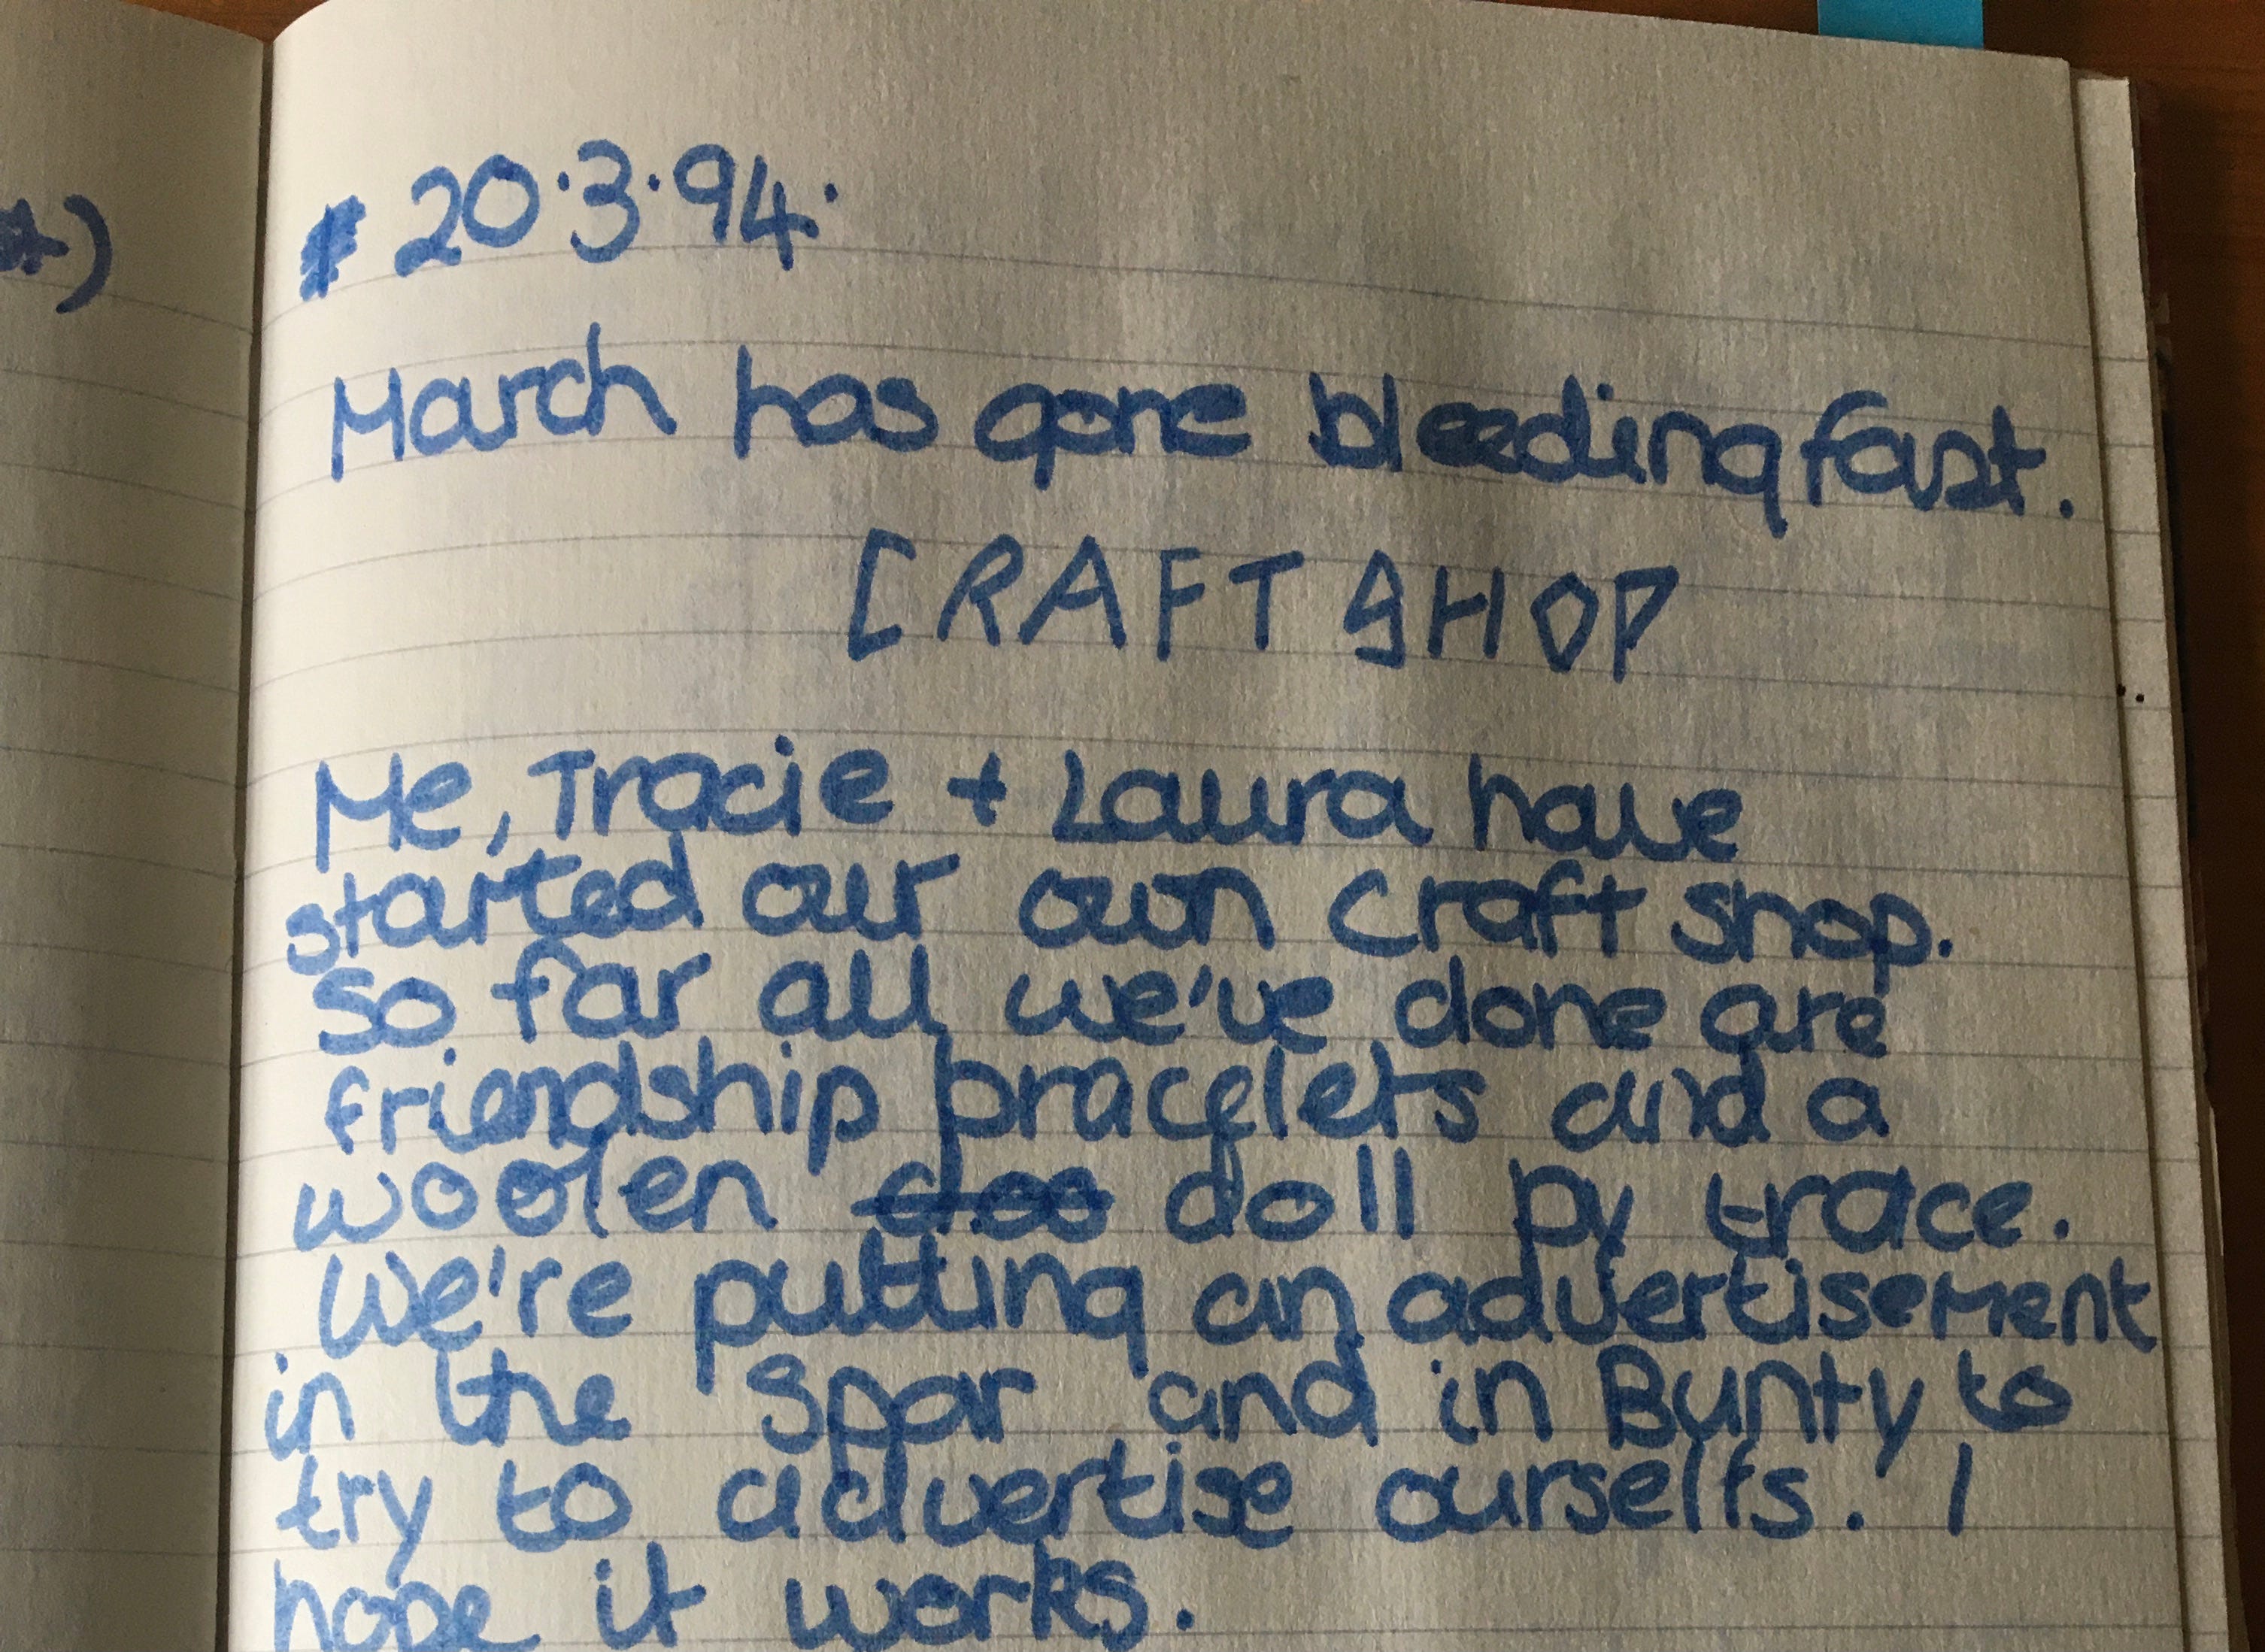 20.3.94.
March has gone bleeding fast.
CRAFT SHOP
Me, Tracie + Laura have
started our own craft shop.
So far all we've done are
friendship bracelets and a
woolen doll by trace.
We're putting an advertisement
in the Spar and in Bunty to
try to advertise ourselfs. I
hope it works.